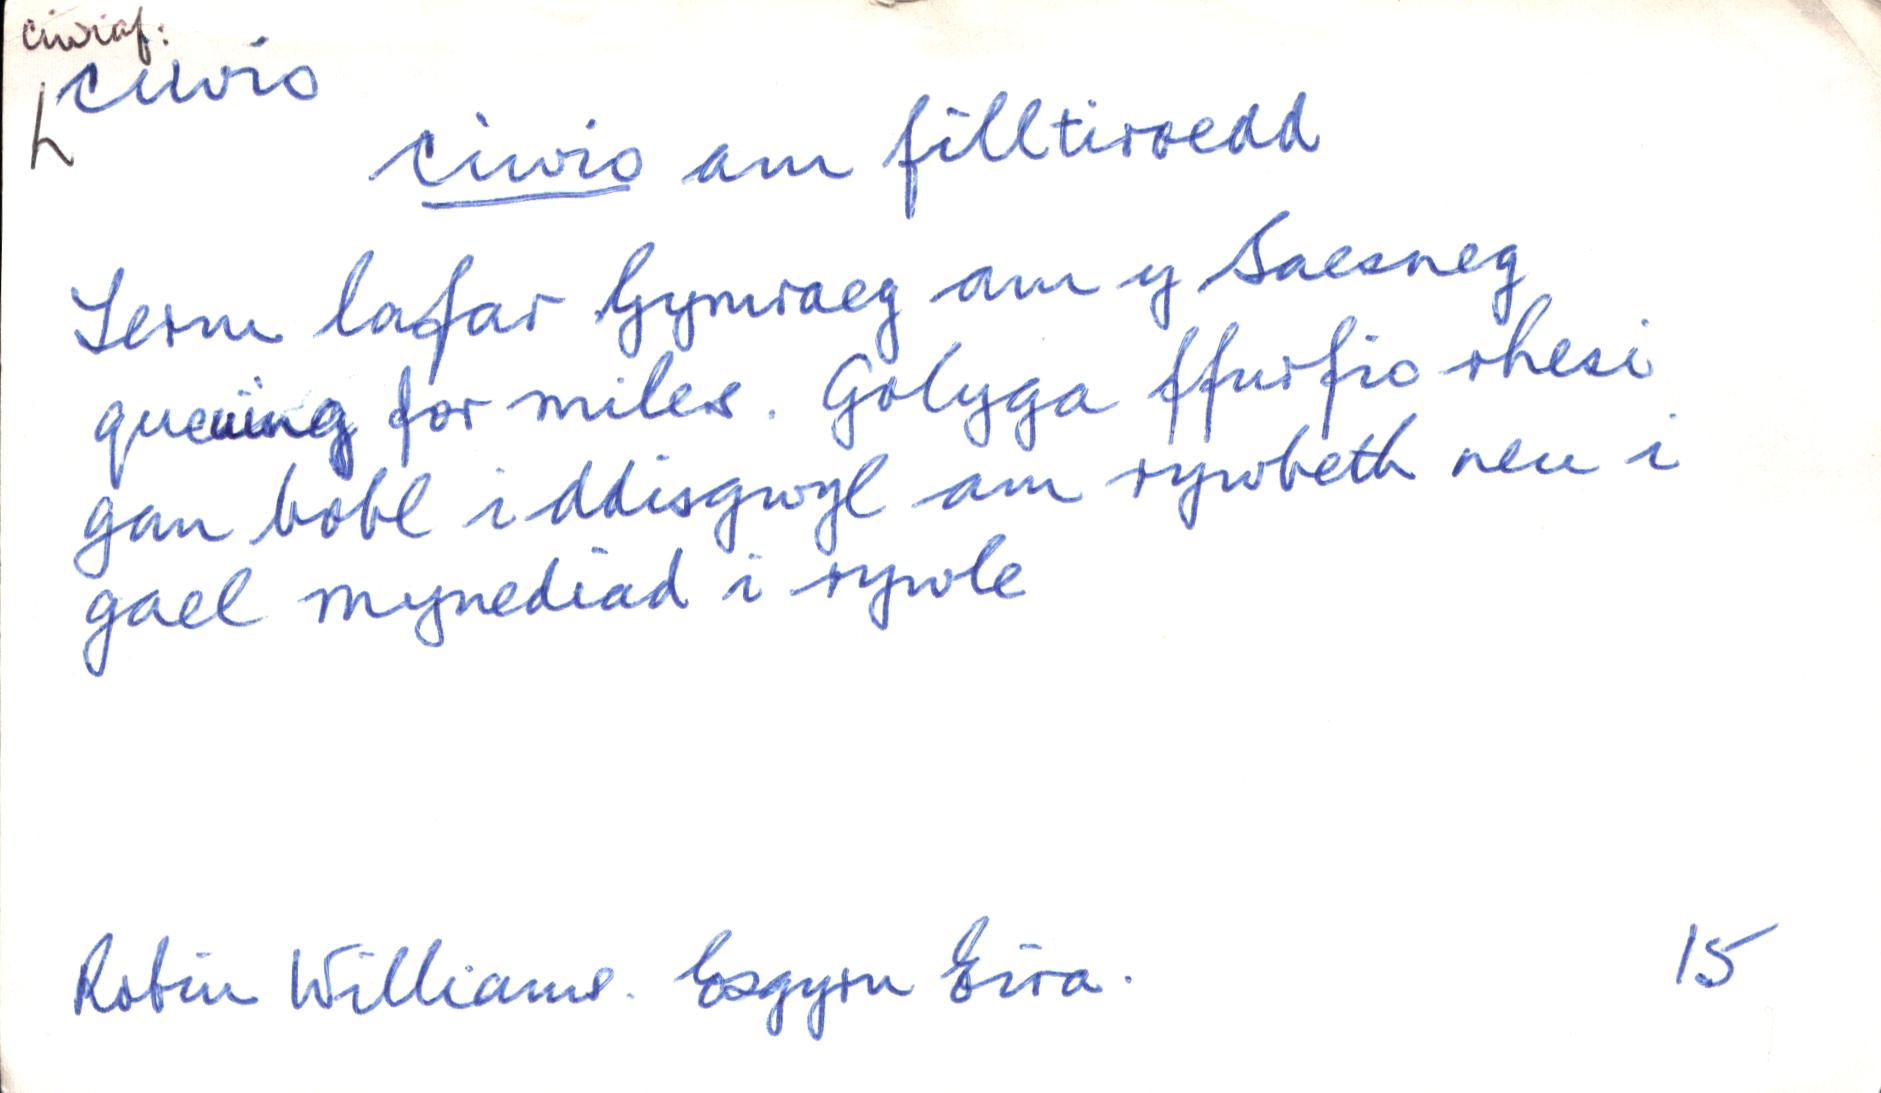 ciwiaf:
ciwio
h
ciwio am filltiroedd
Term lafar Gymraeg am y Saesneg
queuing for miles. Golyga ffurfio rhesi
gan bobl i ddisgwyl am rywbeth neu i
gael mynediad i rywle
Robin Williams. Esgyrn Eira. 15